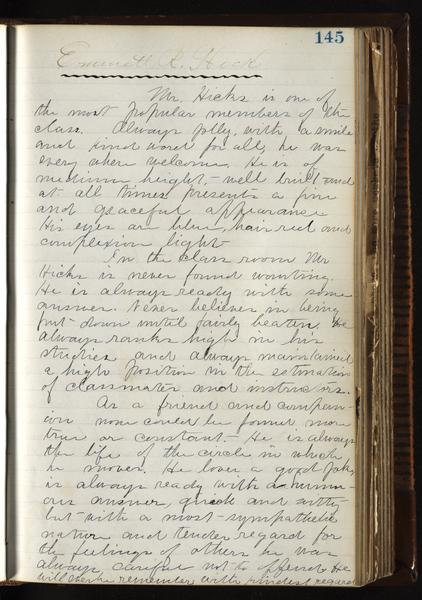 145
Emmett R. Hock
Mr. Hicks is one of
the most popular members of the
class. Always jolly, with a smile
and kind word for all, he was
every where welcome. He is of
medium height, - well built and
at all times presents a fine
and graceful appearance
His eyes are blue, hair red and
complexion light-
In the class room Mr
Hicks is never found wanting.
He is always ready with some
answer. Never believes in being
put down until fairly beaten, he
always ranks high in his
studies and always maintained
a high position in the estimation
of classmates and instructors.
As a friend and compan-
ion none could be found more
true or constant- He is always
the life of the circle in which
he moves. He loves a good joke,
is always ready with a humor-
ous answer, quick and witty
but with a most sympathetic
nature and tender regard for
the feelings of others he was
always careful not to offend. He
will be remember with kindest regards